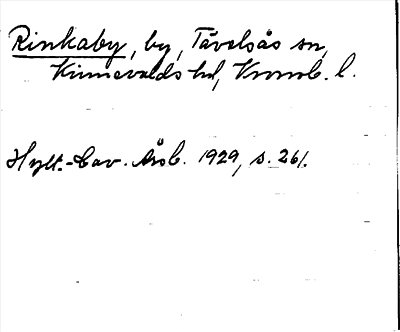 Rinkaby, by, Tävelsås sn,
Kinnevalds hd, Kronob. l.
Hylt.-Cav. Årsb. 1929, s. 261.